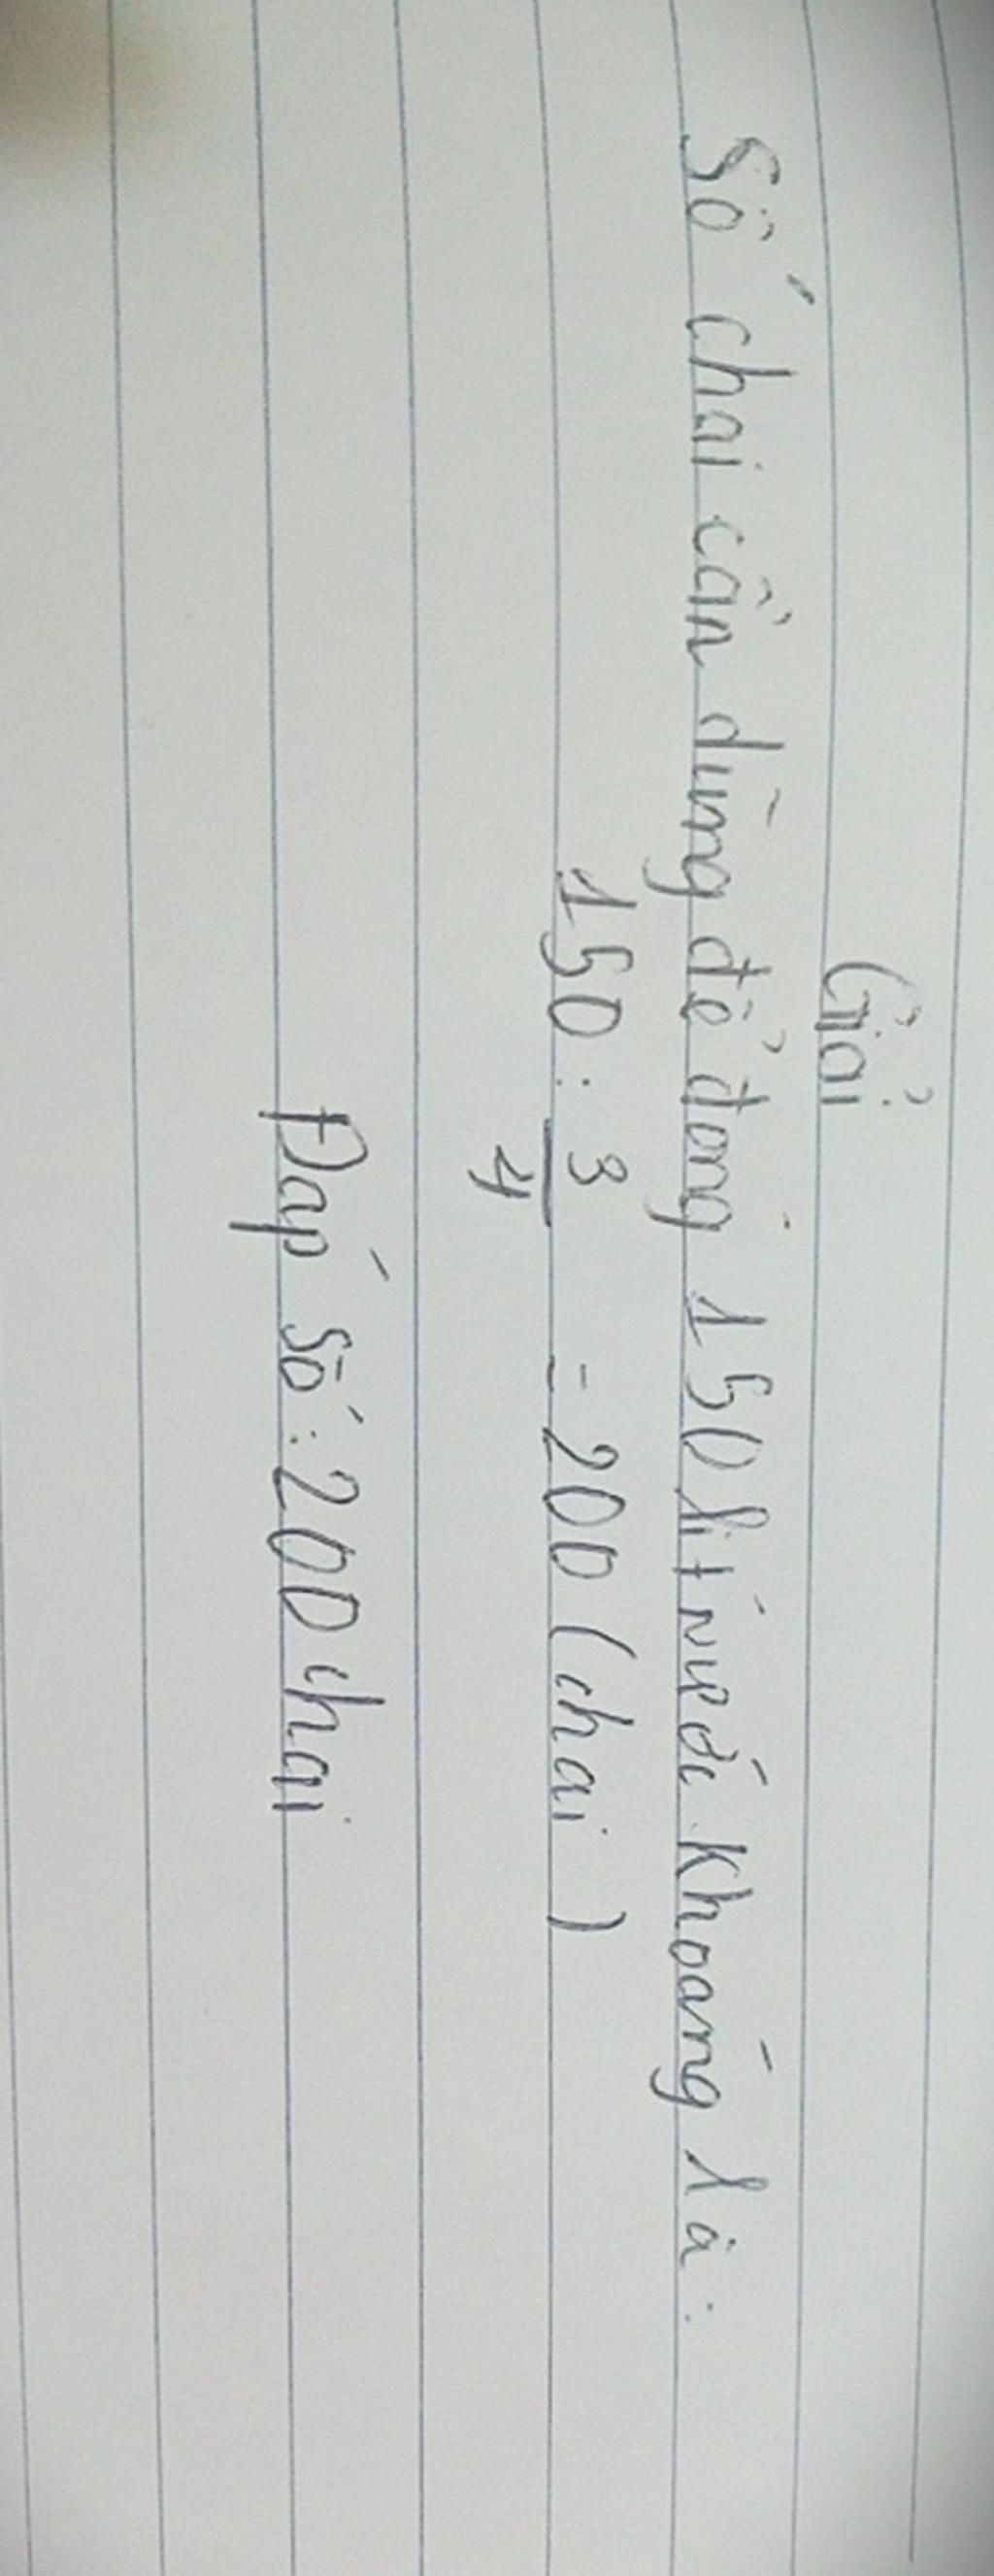 Giải
Số chai cần dùng để đong 150 lít nước khoáng là:
150 : 3/4 = 200 (chai)
Đáp số: 200 chai